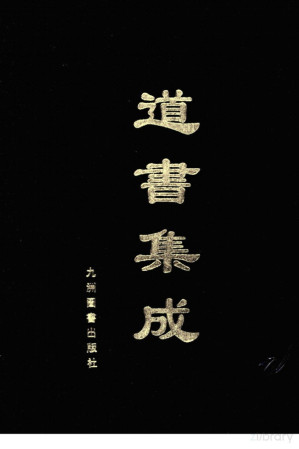 道書集成
九洲圖書出版社
zlibrary